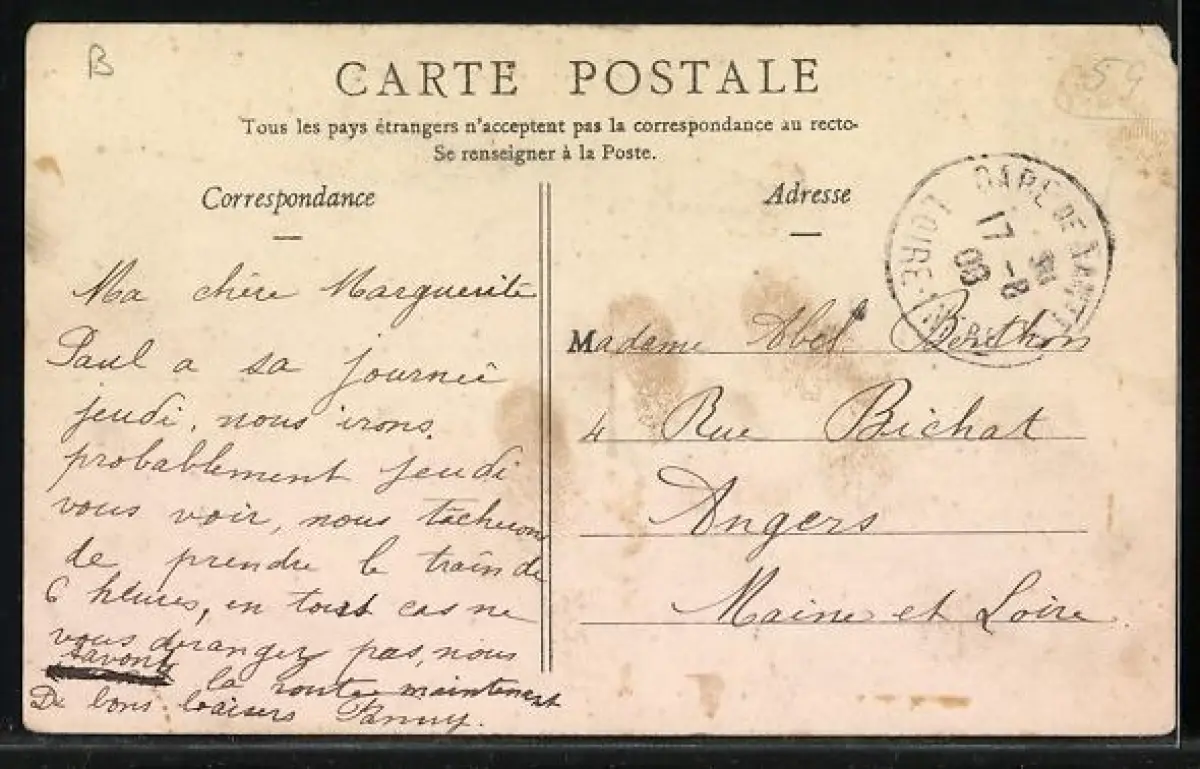 B
59
CARTE POSTALE
Tous les pays étrangers n'acceptent pas la correspondance au recto-
Se renseigner à la Poste.
Correspondance
Ma chère Marguerite
Paul a sa journée
jeudi, nous irons
probablement jeudi
vous voir, nous tacherons
de prendre le train de
6 heures, en tout cas ne
vous derangez pas, nous
savons la route maintenant
De bons baisers Fanny.
Adresse
GARE DE NANTES
LOIRE-INF
17 -8
08
Madame Abel Berthon
4 Rue Bichat
Angers
Maine et Loire